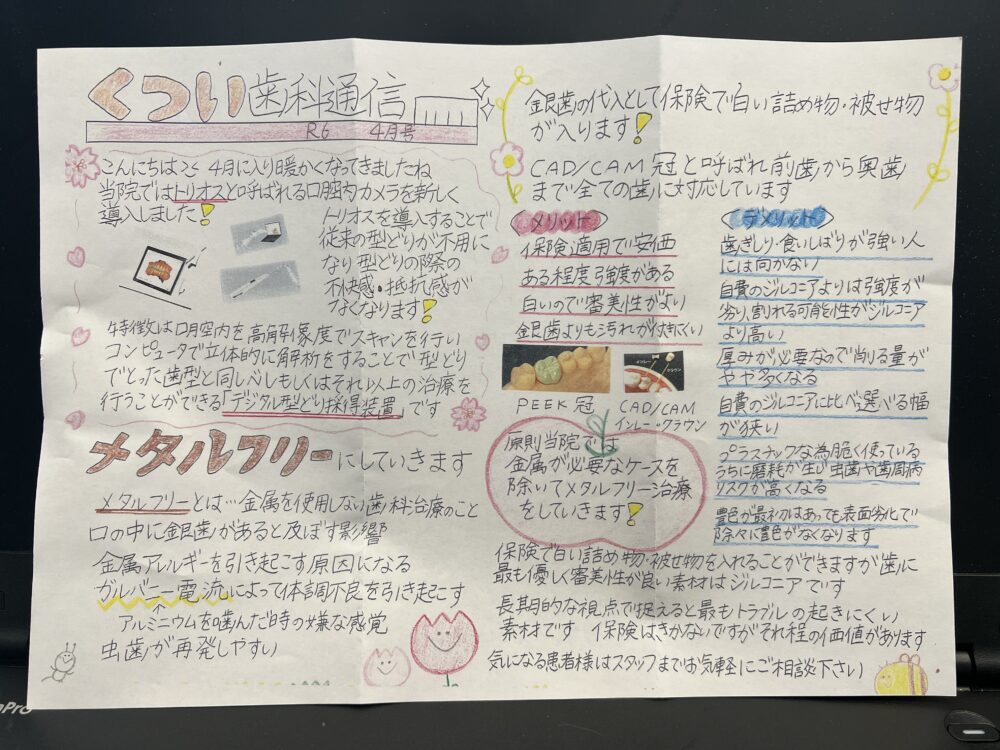 くつい歯科通信
R6 4月号
こんにちは 4月に入り暖かくなってきましたね
当院ではトリオスと呼ばれる口腔内カメラを新しく
導入しました!
トリオスを導入することで
従来の型どりが不用に
なり型どりの際の
不快感・抵抗感が
なくなります!
特徴は口腔内を高解像度でスキャンを行い
コンピュータで立体的に解析をすることで型どり
でとった歯型と同レベルもしくはそれ以上の治療を
行うことができる「デジタル型どり採得装置」です
メタルフリーにしていきます
メタルフリーとは…金属を使用しない歯科治療のこと
口の中に金銀歯があると及ぼす影響
金属アレルギーを引き起こす原因になる
ガルバニー電流によって体調不良を引き起こす
アルミニウムを噛んだ時の嫌な感覚
虫歯が再発しやすい
金銀歯の代入として保険で白い詰め物・被せ物
が入ります!
CAD/CAM冠と呼ばれ前歯から奥歯
まで全ての歯に対応しています
メリット
保険適用で安価
ある程度強度がある
白いので審美性がよい
金銀歯よりも汚れが付きにくい
PEEK冠
CAD/CAM
インレー・クラウン
デメリット
歯ぎしり・食いしばりが強い人
には向かない
自費のジルコニアよりは強度が
劣り、割れる可能性がジルコニア
より高い
厚みが必要なので削る量が
やや多くなる
自費のジルコニアに比べ選べる幅
が狭い
プラスチックな為脆く使っている
うちに磨耗が生じ虫歯や歯周病
リスクが高くなる
艶色が最初はあっても表面劣化で
徐々に艶色がなくなります
原則当院では
金属が必要なケースを
除いてメタルフリー治療
をしていきます!
保険で白い詰め物・被せ物を入れることができますが歯に
最も優しく審美性が良い素材はジルコニアです
長期的な視点で捉えると最もトラブルの起きにくい
素材です 保険はきかないですがそれ程の価値があります
気になる患者様はスタッフまでお気軽にご相談下さい